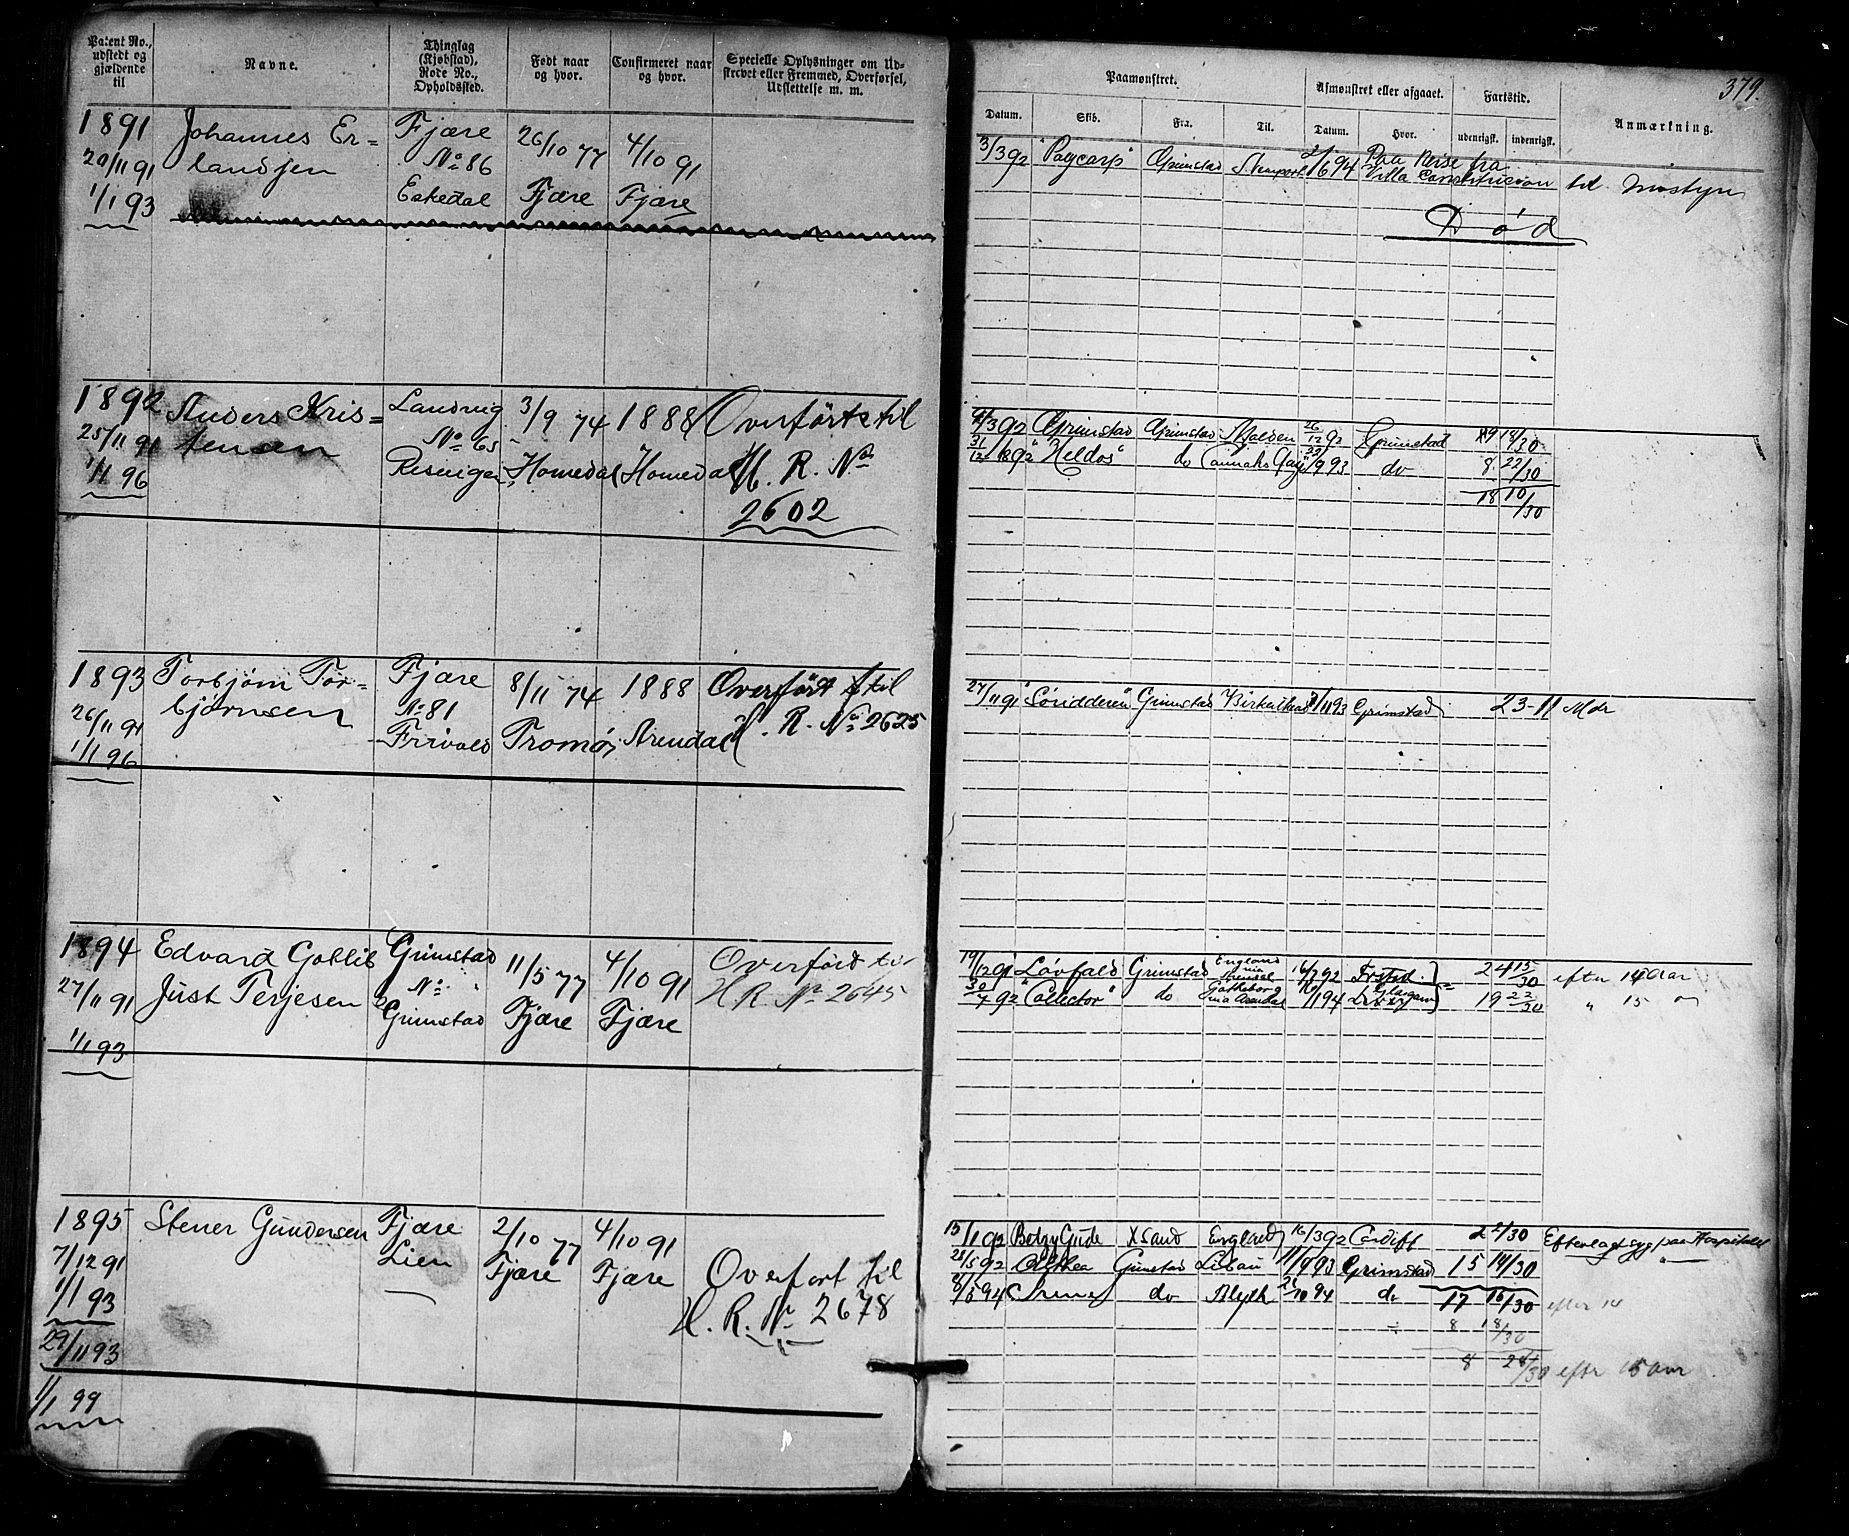 Patent No., udstedt og gjældende til
Navne.
Thinglag (Kjøbstad), Rode No., Opholdssted.
Født naar og hvor.
Confirmeret naar og hvor.
Specielle Oplysninger om Udskrevet eller Fremmed, Overførsel, Udslettelse m. m.
1891 Johannes Er=
landsen
29/11 91
1/1 93
Fjære
No 86
Eskedal
26/10 77
Fjære
4/10 91
Fjære
1892 Anders Kris=
tensen
25/11 91
1/1 96
Landvig
No 65
3/9 74
Homedal
1888
Homedal
Overførts til
H. R. No
2602
1893 Torbjørn Tor=
bjørnsen
26/11 91
1/1 96
Fjære
No 81
Frivold
8/11 74
Tromø
1888
Arendal
Overført til
H. R. No 2625
1894 Edvard Gotlib
Just Terjesen
27/11 91
1/1 93
Grimstad
No
Grimstad
11/5 77
Fjære
4/10 91
Fjære
Overført til
H R. No 2645
1895 Stener Gundersen
7/12 91
1/1 93
29/11 93
1/1 99
Fjære
Lien
2/10 77
Fjære
4/10 91
Fjære
Overført til
H. R. No 2678
379.
Paamønstret.
Afmønstret eller afgaaet.
Fartstid.
Anmærkning.
Datum.
Skib.
Fra.
Til.
Datum.
Hvor.
udenrigsk.
indenrigsk.
3/3 92 Grimstad 94 Paa Reise fra
Villa Constitucion til Mostyn
Død
3 92 Grimstad Grimstad Malden 26/12 92 Grimstad 9 18/30
92 9 93 do 8 22/30
18 10/30
27/11 91 Grimstad 11 93 Grimstad 23-11 Mdr
19/12 91 Løvfald Grimstad England 92 24 15/30 efter 14 Aar
30/7 92 "Collector" do Gøtheborg 94 19 22/30 " 15 "
13/1 92 Betzy Gude XSand England 16/3 92 Cardiff 2 2/30 Efterlagt syg paa Hospitalet
28/5 92 Althea Grimstad Libau 11/9 93 Grimstad 15 14/30
94 Irene do Blyth 10 94 do 17 16/30 efter 14
8 18/30
8 28/30 efter 15 Aar